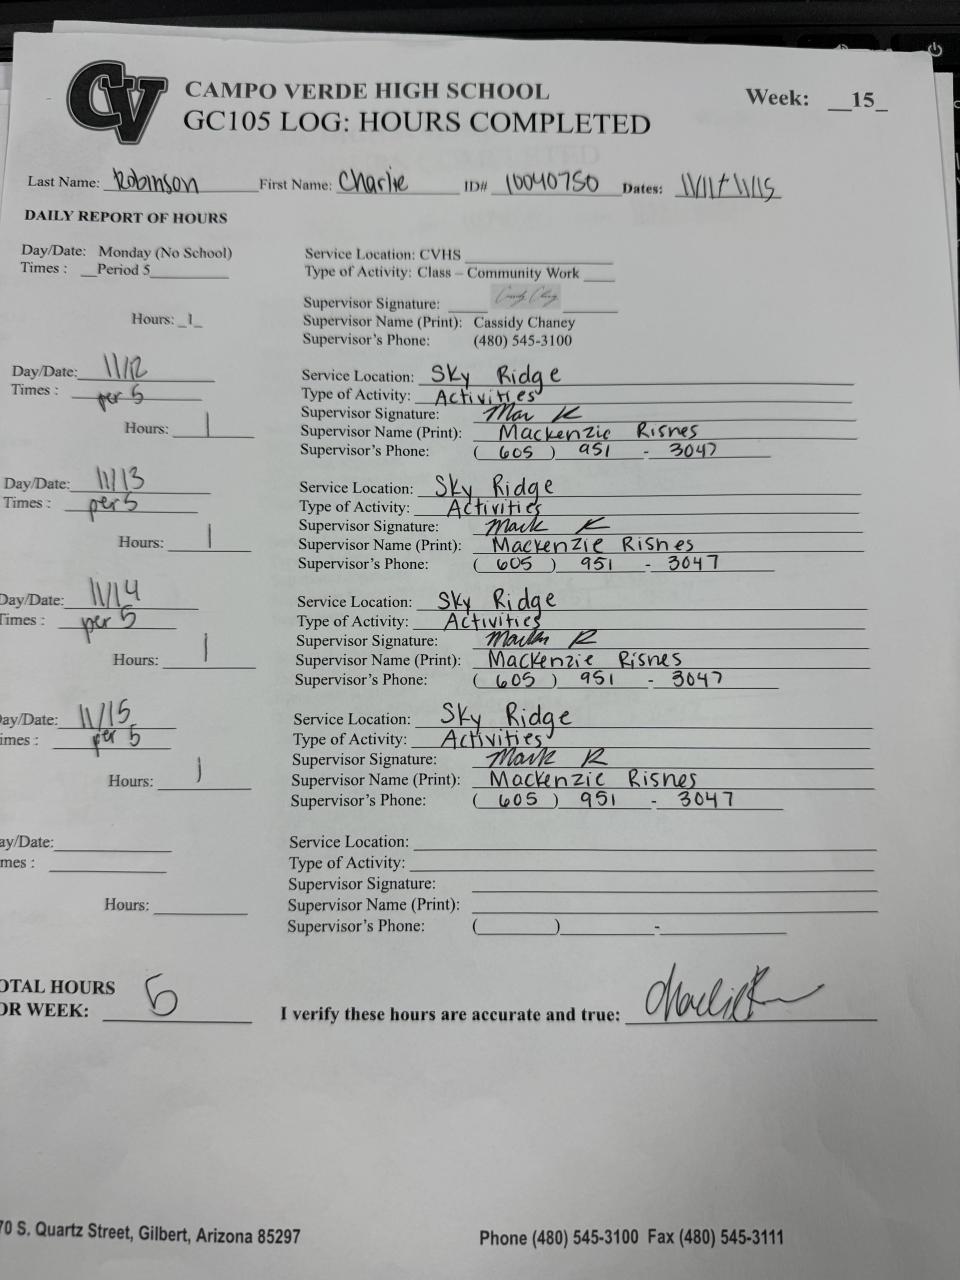 CV
CAMPO VERDE HIGH SCHOOL
Week: __15_
GC105 LOG: HOURS COMPLETED
Last Name: Robinson First Name: Charlie ID# 10040750 Dates: 11/11 + 11/15
DAILY REPORT OF HOURS
Day/Date: Monday (No School) Service Location: CVHS
Times : __Period 5 Type of Activity: Class – Community Work
Supervisor Signature:
Hours: _1_ Supervisor Name (Print): Cassidy Chaney
Supervisor's Phone: (480) 545-3100
Day/Date: 11/12 Service Location: Sky Ridge
Times : per 5 Type of Activity: Activities
Supervisor Signature:
Hours: 1 Supervisor Name (Print): Mackenzie Risnes
Supervisor's Phone: (605) 951 - 3047
Day/Date: 11/13 Service Location: Sky Ridge
Times : per 5 Type of Activity: Activities
Supervisor Signature:
Hours: 1 Supervisor Name (Print): Mackenzie Risnes
Supervisor's Phone: (605) 951 - 3047
Day/Date: 11/14 Service Location: Sky Ridge
Times : per 5 Type of Activity: Activities
Supervisor Signature:
Hours: 1 Supervisor Name (Print): Mackenzie Risnes
Supervisor's Phone: (605) 951 - 3047
ay/Date: 11/15 Service Location: Sky Ridge
imes : per 5 Type of Activity: Activities
Supervisor Signature:
Hours: 1 Supervisor Name (Print): Mackenzie Risnes
Supervisor's Phone: (605) 951 - 3047
ay/Date: Service Location:
mes : Type of Activity:
Supervisor Signature:
Hours: Supervisor Name (Print):
Supervisor's Phone: ( ) -
OTAL HOURS
OR WEEK: 5 I verify these hours are accurate and true: Charlie R
70 S. Quartz Street, Gilbert, Arizona 85297 Phone (480) 545-3100 Fax (480) 545-3111